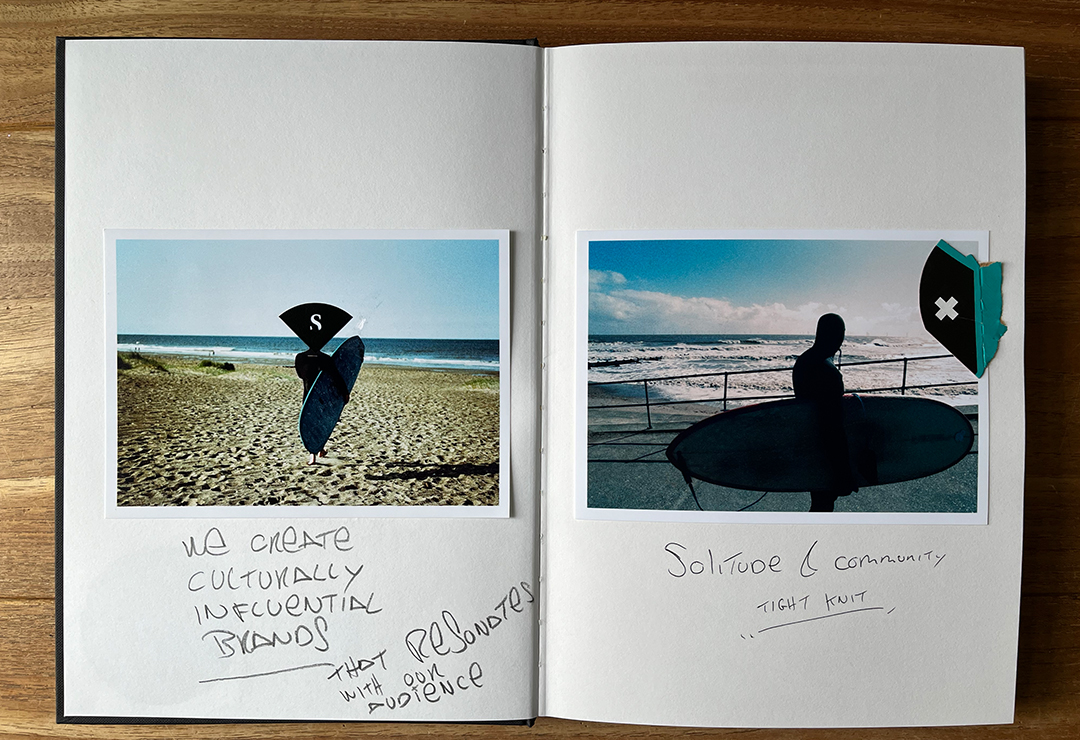 S
WE CREATE
CULTURALLY
INFLUENTIAL
BRANDS
THAT RESONATES
WITH OUR
AUDIENCE
Solitude & community
TIGHT KNIT